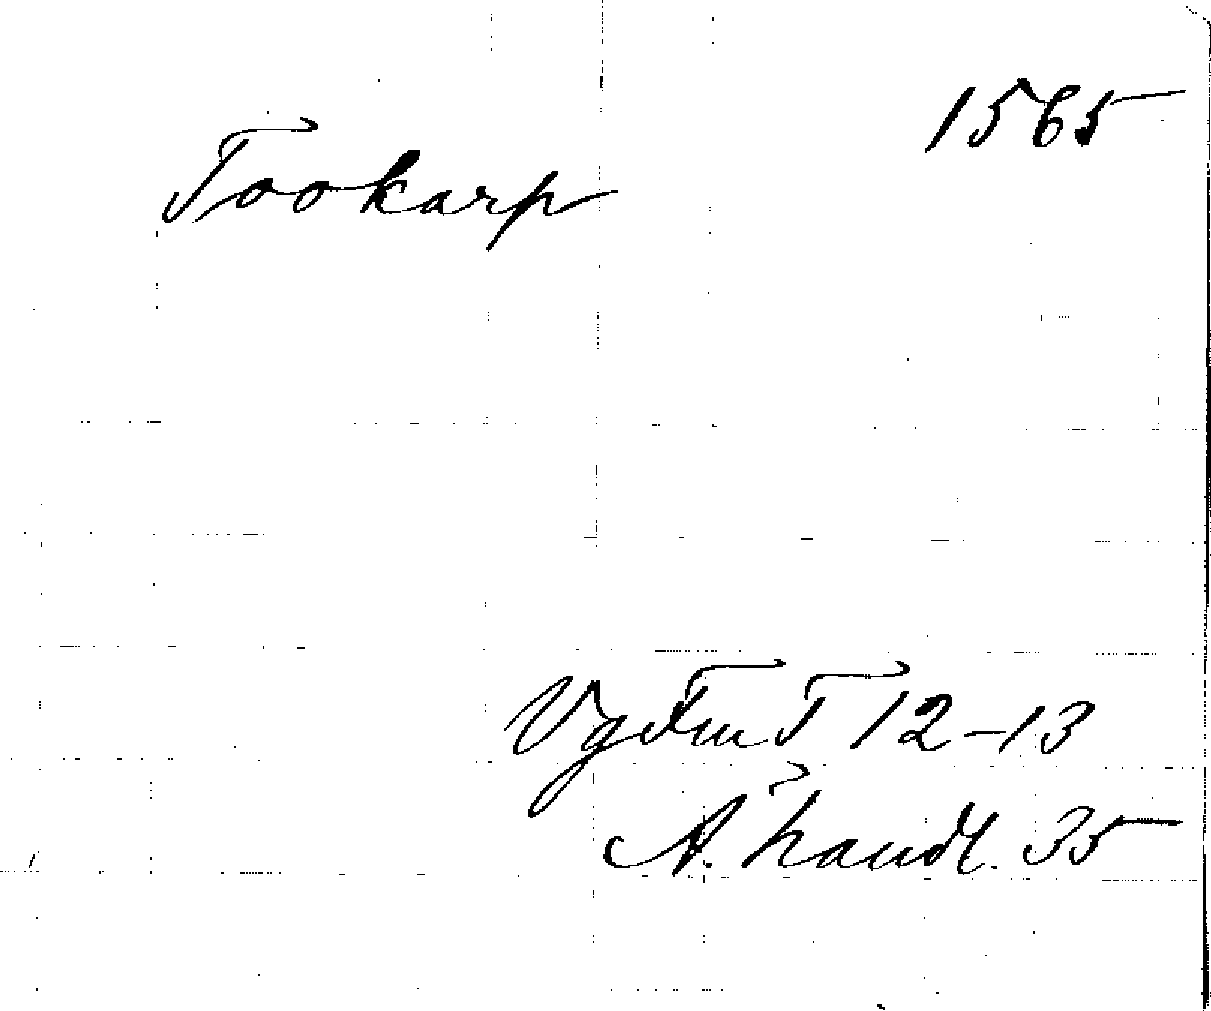 1565
Tookarp
VgFmT 12-13
Ä. handl. 35